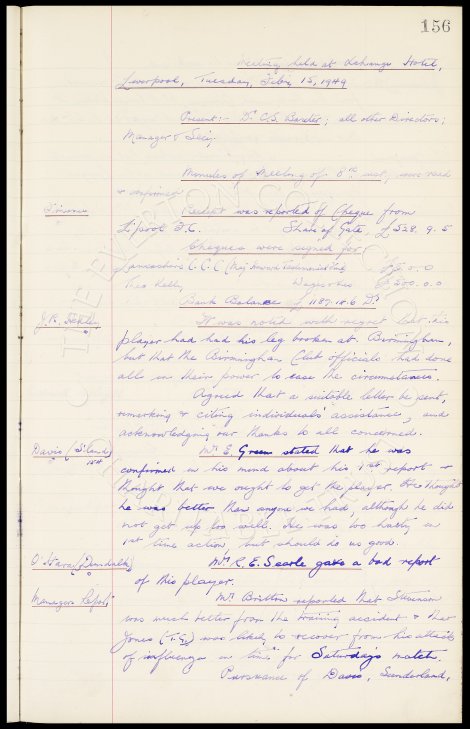 156
Meeting held at Exchange Hotel,
Liverpool, Tuesday, Feb'y 15, 1949
Present:- Dr C.S. Baxter; all other Directors;
Manager & Sec'y.
Minutes of Meeting of 8th inst. were read
& confirmed
Finance
Receipt was reported of Cheque from
L'pool F.C. Share of Gate. £528. 9. 5
Cheques were signed for
Lancashire C.C.C.
Theo Kelly, Wages &c
Bank Balance £1187.18.6 Dr
It was noted with regret that this
player had had his leg broken at Birmingham,
but that the Birmingham Club officials had done
all in their power to ease the circumstances.
Agreed that a suitable letter be sent,
remarking & citing individuals' assistance, and
acknowledging our thanks to all concerned.
Davis (S'land)
Mr E. Green stated that he was
confirmed in his mind about his 1st report &
thought that we ought to get the player. He thought
he was better than anyone we had, although he did
not get up too well. He was too hasty in
1st time action, but should do us good.
O'Hara (Dundalk)
Mr R.E. Searle gave a bad report
of this player.
Managers Report
Mr Britton reported that Stevenson
was much better from the training accident & that
Jones (T.G.) was likely to recover from his attack
of influenza in time for Saturday's match.
Pursuance of Davis, Sunderland,
THE EVERTON CO